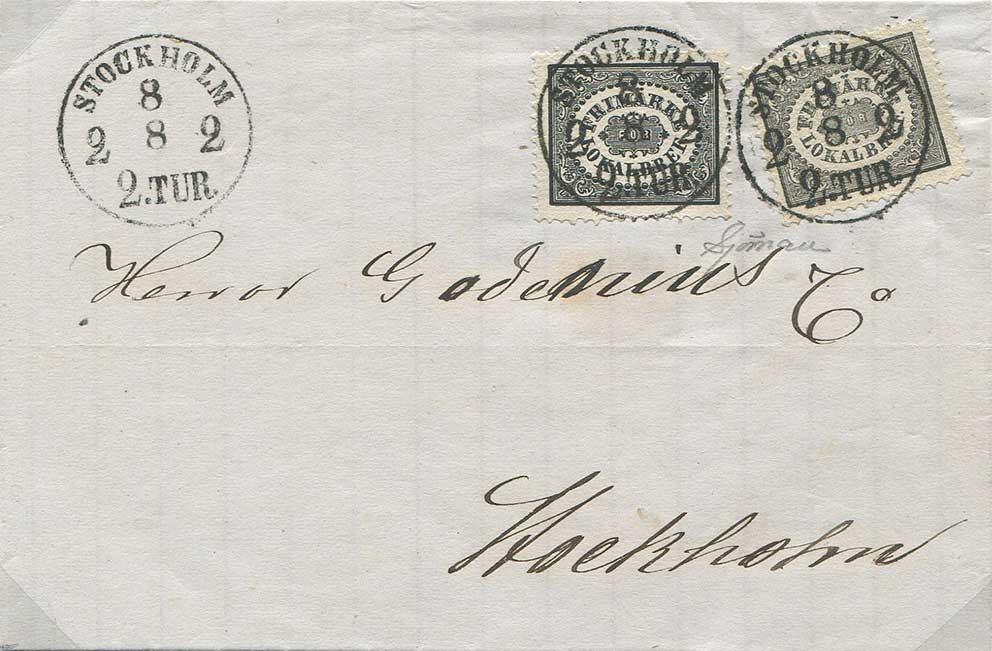 STOCKHOLM
8
2 8 2
2.TUR.
STOCKHOLM
8
2 8 2
2.TUR.
FRIMÄRKE
FÖR
LOKALBREF
STOCKHOLM
8
2 8 2
2.TUR.
FRIMÄRKE
FÖR
LOKALBREF
Sjöman
Herrar Godenius & Co
Stockholm